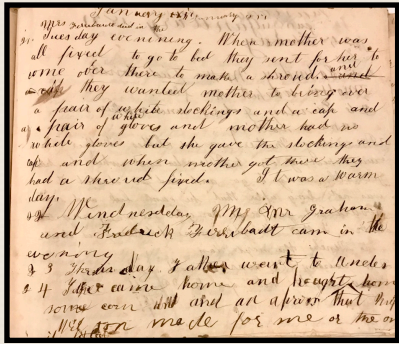 January 1851
Mrs died in the
Tuesday evenining. When mother was
all fixed to go to bed they sent for her to
come over there to make a shroud. and
cap they wanted mother to bring over
a pair of white stockings and a cap and
a pair of white gloves and mother had no
white gloves but she gave the stockings and
cap and when mother got there they
had a shroud fixed. It was a warm
day.
22 Windnesdday Graham
and Fredrick cam in the
evening
23 Thursday. Father went to
24 Father came home and bought home
some corn and an apron that
made for me or the